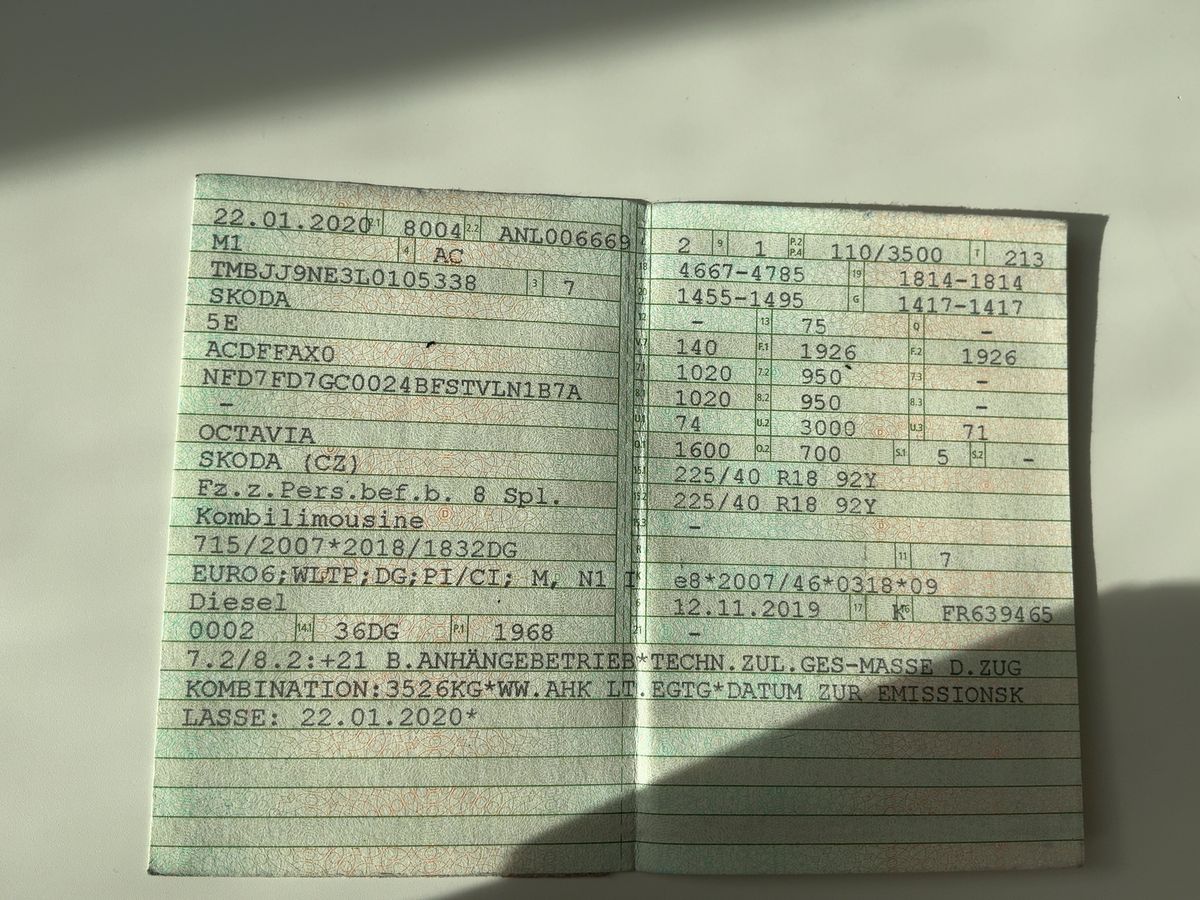 22.01.2020 2.1 8004 2.2 ANL006669
M1 4 AC
TMBJJ9NE3L0105338 3 7
SKODA
5E
ACDFFAX0
NFD7FD7GC0024BFSTVLN1B7A
–
OCTAVIA
SKODA (CZ)
Fz.z.Pers.bef.b. 8 Spl.
Kombilimousine
715/2007*2018/1832DG
EURO6;WLTP;DG;PI/CI; M, N1 I
Diesel
0002 14.1 36DG P.1 1968
L 2 9 1 P.2 P.4 110/3500 T 213
18 4667-4785 19 1814-1814
20 1455-1495 G 1417-1417
12 – 13 75 Q –
V.7 140 F.1 1926 F.2 1926
7.1 1020 7.2 950 7.3 –
8.1 1020 8.2 950 8.3 –
U.1 74 U.2 3000 U.3 71
O.1 1600 O.2 700 S.1 5 S.2 –
15.1 225/40 R18 92Y
15.2 225/40 R18 92Y
15.3 –
R 11 7
K e8*2007/46*0318*09
6 12.11.2019 17 K 16 FR639465
21 –
7.2/8.2:+21 B.ANHÄNGEBETRIEB*TECHN.ZUL.GES-MASSE D.ZUG
KOMBINATION:3526KG*WW.AHK LT.EGTG*DATUM ZUR EMISSIONSK
LASSE: 22.01.2020*